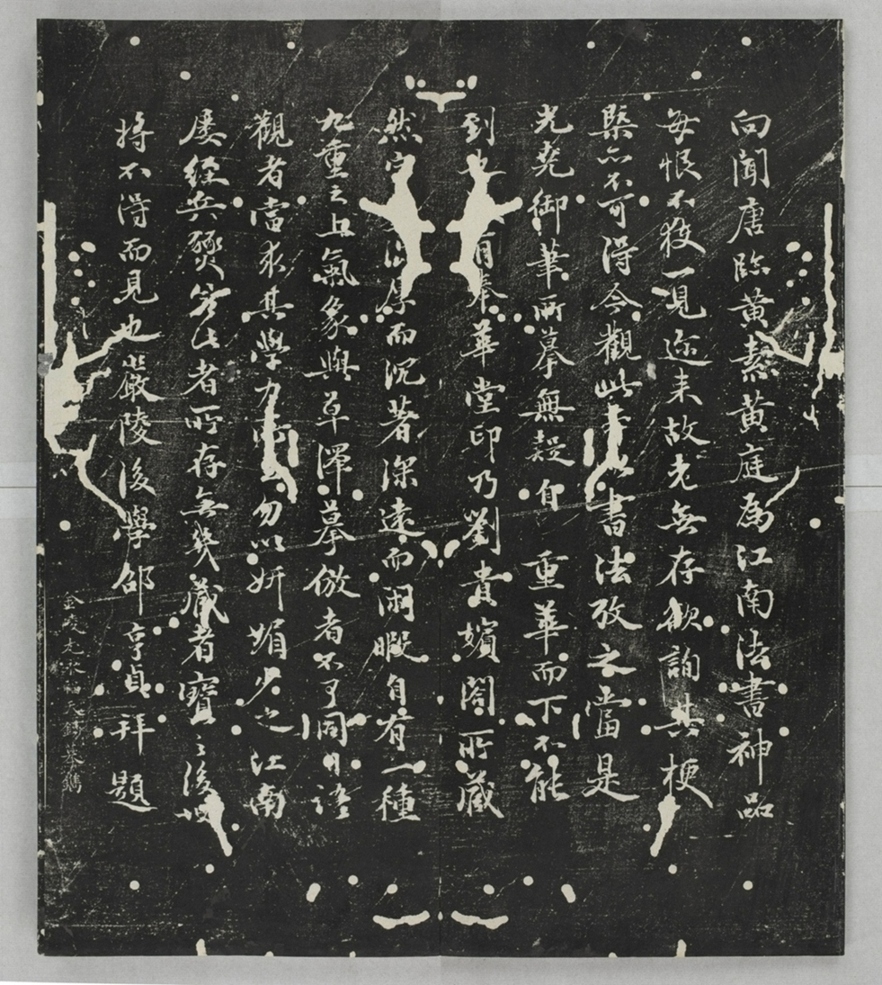 向聞唐臨黃素黃庭為江南法書神品
每恨不獲一見近来故老無存欲詢其梗
槩亦不可得今觀此書法孜之當是
光堯御華所摹無疑自重華而下不能
到也華堂印乃劉貴嬪閣所藏
然而沉著深遠而閑暇自有一種
九重之上氣象與草澤摹倣者不可同日語
觀者當求其學力勿以妍媚失之江南
屢經兵燹若此者所存無幾藏者寶之後
將不得而見也嚴陵後學邵亨貞拜題
金陵
摹鐫